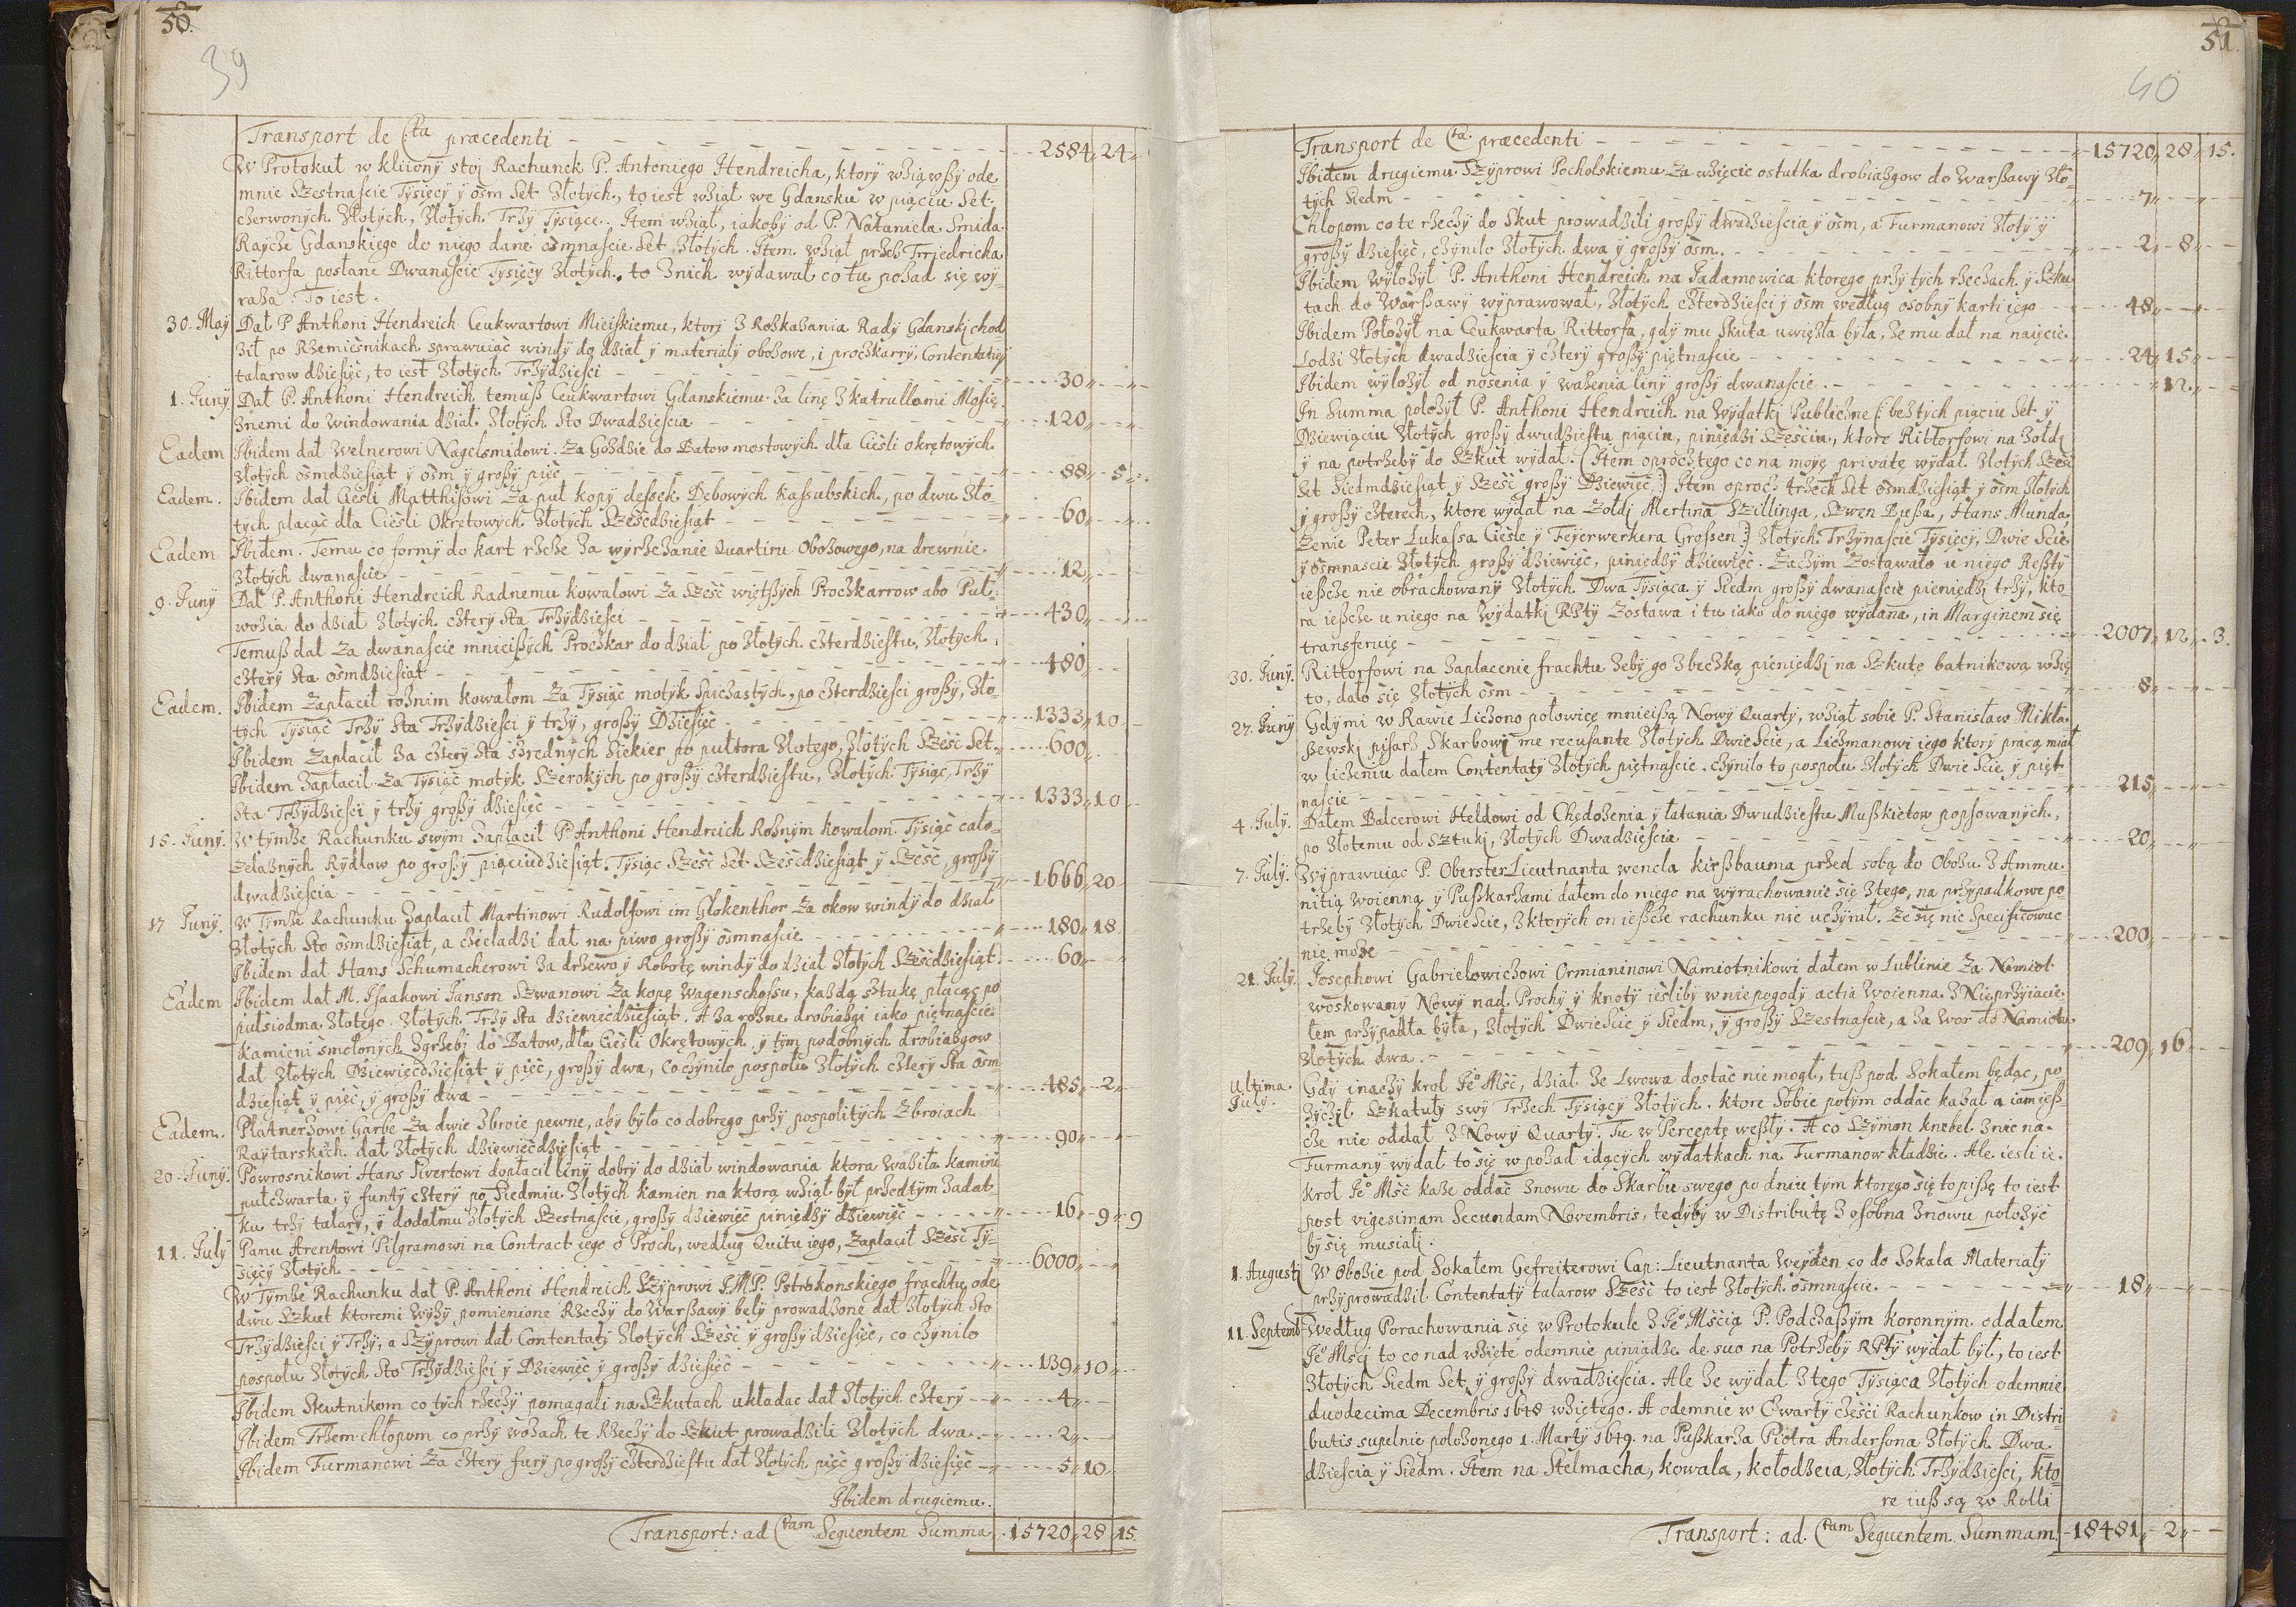 50.
39
Transport de Cta præcedenti 2584 24
W Protokuł w kliiony stoj Rachunek P. Antoniego Hendreicha, ktory wziąwszy ode
mnie Szesnascie Tysięcy y osm Set Złotych, to iest wziął we Gdansku w pięciu Set
czerwonych Złotych, Złotych Trzy Tysiące. Item wziął, iakoby od P. Nataniela Smida
Rayce Gdanskiego do niego dane osmnascie Set Złotych. Item wziął przez Frriedricha
Rittorfa posłane Dwanascie Tysięcy Złotych. to z nich wydawał co tu pozad się wy-
raża: To iest.
30. May Dał P Anthoni Hendreich Ceukwartowi Mieiskiemu, ktory z Roskazania Rady Gdanskj chod
ził po Rzemiesnikach sprawuiąc windy do dział y materiały obozowe, i prochkarry, Contentaty
talarow dziesięć, to iest Złotych Trzydziesci 30
1. Juny. Dał P. Anthoni Hendreich temusz Ceukwartowi Gdanskiemu za linę z katrullami Mosię
znemi do windowania dział Złotych Sto Dwadziescia 120
Eadem Ibidem dał Welnerowi Nagelsmidowi. Za Gozdzie do Batow mostowych dla Ciesli okrętowych
Złotych osmdziesiąt y osm y groszy pięć 88 5
Eadem. Ibidem dał Ciesli Matthisowi za puł kopy dessek Dębowych Kassubskich, po dwu Zło-
tych płacąc dla Ciesli Okrętowych Złotych Szescdziesiąt 60
Eadem Ibidem. Temu co formy do kart rzeże za wyrzezanie Quartiru Obozowego, na drewnie
Złotych dwanascie 12
9. Juny Dał P. Anthoni Hendreich Radnemu kowalowi za Szesc więtszych Prochkarrow abo Puł
wozia do dział Złotych cztery Sta Trzydziesci 430
Temusz dał za dwanascie mnieiszych Prochkar do dział po Złotych czterdziestu, Złotych
cztery Sta osmdziesiąt 480
Eadem. Ibidem Zapłacił roznim kowalom za Tysiąc motyk Spiczastych, po czterdziesci groszy, Zło-
tych Tysiąc Trzy Sta Trzydziesci y trzy, groszy Dziesięć 1333 10
Ibidem Zapłacił za cztery Sta szrednych Siekier po pułtora Złotego, Złotych Szesc Set 600
Ibidem Zapłacił za Tysiąc motyk Szerokych po groszy czterdziestu, Złotych Tysiąc, Trzy
Sta Trzydziesci y trzy groszy dziesięć 1333 10
15. Juny. W tymże Rachunku swym Zapłacił P. Anthoni Hendreich Roznym kowalom Tysiąc cało-
żelaznych Rydlow po groszy pięciudziesiąt. Tysiąc Szesc Set Szescdziesiąt y Szesc, groszy
dwadziescia 1666 20
17 Juny. W Tymże Rachunku Zapłacił Martinowi Rudolfowi im Glokenthor za okow windy do dział
Złotych Sto osmdziesiąt, a czeladzi dał na piwo groszy osmnascie 180 18
Ibidem dał Hans Schumacherowi za drzewo y Robotę windy do dział Złotych Szescdziesiąt 60
Eadem Ibidem dał M. Isaakowi Janson Szwanowi za kopę Wagenschossu, każdą sztukę płacąc po
pułsiodma Złotego. Złotych Trzy Sta dziewięcdziesiąt. A za rozne drobiazgi iako piętnascie
kamieni smolonych zgrzebi do Batow, dla Ciesli Okrętowych, y tym podobnych drobiazgow
dał Złotych Dziewięcdziesiąt y pięć, groszy dwa, Co czyniło pospołu Złotych cztery Sta osm
dziesiąt y pięć, y groszy dwa 485 2
Eadem. Płatnerzowi Garbe za dwie zbroie pewne, aby było co dobrego przy pospolitych zbroiach
Raytarskich dał Złotych dziewięcdziesiąt 90
20. Juny. Powrosnikowi Hans Sivertowi dopłacił liny dobry do dział windowania ktora ważiła kamini
pułczwarta y funty cztery po Siedmiu Złotych kamien na ktorą wziął był przedtym zadat-
ku trzy talary, y dodałmu Złotych Szesnascie, groszy dziewięć piniędzy dziewięć 16 9 9
11. July Panu Arentowi Pilgramowi na Contract iego o Proch, według Quitu iego, Zapłacił Szesc Ty-
sięcy Złotych 6000
W Tymże Rachunku dał P. Anthoni Hendreich Szyprowi J.M.P. Pstrokonskiego frachtu ode
dwu Szkut ktoremi wyży pomienione Rzeczy do Warszawy beły prowadzone dał Złotych Sto
Trzydziesci y Trzy, a Szyprowi dał Contentaty Złotych Szesc y groszy dziesięć, co czyniło
pospołu Złotych Sto Trzydziesci y Dziewięć y groszy dziesięć 139 10
Ibidem Skutnikom co tych rzeczy pomagali na Szkutach układac dał Złotych cztery 4
Ibidem Trzem chłopom co przy wozach te Rzeczy do Szkut prowadzili Złotych dwa 2
Ibidem Furmanowi za cztery fury po groszy czterdziestu dał Złotych pięć groszy dziesięć 5 10
Ibidem drugiemu.
Transport: ad Ctam Sequentem Summa 15720 28 15.
51.
40
Transport de Cta. præcedenti 15720 28 15.
Ibidem drugiemu Szyprowi Pocholskiemu za wzięcie ostatka drobiazgow do Warszawy Zło-
tych Siedm 7
Chłopom co te rzeczy do Skut prowadzili groszy dwadziescia y osm, a Furmanowi Złoty y
groszy dziesięć, czyniło Złotych dwa y groszy osm. 2 8
Ibidem Wyłożył P. Anthoni Hendreich na Jadamowica ktorego przy tych rzechach y Szku
tach do Warszawy wyprawował, Złotych Czterdziesci y osm według osobny karti iego 48
Ibidem Położył na Ceukwarta Rittorfa, gdy mu Skuta uwięzła była, że mu dał na naięcie
Lodzi Złotych dwadziescia y cztery groszy piętnascie 24 15
Ibidem wyłożył od nosenia y ważenia liny groszy dwanascie. 12
In Summa położył P. Anthoni Hendreich na Wydatki Publiczne (: bez tych pięciu Set y
Dziewięciu Złotych groszy dwudziestu pięciu, piniędzi Szesciu, ktore Rittorfowi na Żołd
y na potrzeby do Szkut wydał. (Item oprocz tego co na moyę privatę wydał Złotych Szesc
Set Siedmdziesiąt y Szesc groszy Dziewięć:) Item oprocz trzech Set osmdziesiąt y osm Złotych
y groszy czterech, ktore wydał na Żołdj Mertina Szillinga, Szwen Bussa, Hans Munda,
Żenie Peter Lukassa Ciesle y Feyerwerkera Grossen:) Złotych Trzynascie Tysięcy, Dwie Scie
y osmnascie Złotych groszy dziewięć, piniędzy dziewięć. Zaczym Zostawało u niego Reszty
ieszcze nie obrachowany Złotych Dwa Tysiąca y Siedm groszy dwanascie pieniędzj trzy, kto
ra ieszcze u niego na Wydatkj RPty zostawa i tu iako do niego wydana, in Marginem się
transferuię 2007 12 3.
30. Juny. Rittorfowi na zapłacenie frachtu żeby go z beczką pieniędzj na Szkutę batnikową wzię
to, dało się Złotych osm 8
27. Juny Gdymi w Rawie Liczono połowicę mnieiszą Nowy Quarty, wziął sobie P. Stanisław Mikła-
szewskj pisarz Skarbowy me recusante Złotych DwieScie, a Liczmanowi iego ktory pracą miał
w liczeniu dałem Contentaty Złotych piętnascie. Czyniło to pospołu Złotych Dwie Scie y pięt
nascie 215
4. July. Dałem Balcerowi Heldowi od Chędożenia y łatania Dwudziestu Muszkietow popsowanych,
po Złotemu od Sztuki, Złotych Dwadziescia 20
7. July. Wyprawuiąc P. Oberster Lieutnanta Wencla Kirszbauma przed sobą do Obozu z Ammu-
nitią woienną y Puszkarzami dałem do niego na wyrachowanie się z tego, na przypadkowe po
trzeby Złotych DwieScie, z ktorych on ieszcze rachunku nie uczynił. Że się nie Specificowac
nie może 200
21. July. Josephowi Gabrielowiczowi Ormianinowi Namiotnikowi dałem w Lublinie za Namiot
woskowany Nowy nad Prochy y knoty iesliby w niepogody actia Woienna z Nieprzyiacie-
lem przypadła była, Złotych DwieScie y Siedm, y groszy Szesnascie, a za Wor do Namiotu
Złotych dwa. 209 16
Ultima July. Gdy inaczy krol Jeo Msć, dział ze Lwowa dostac nie mogł, tusz pod Sokalem będąc, po
życzył Szkatuły swy Trzech Tysięcy Złotych. ktore Sobie potym oddac kazał a iam iesz-
cze nie oddał z Nowy Quarty. Tu w Perceptę weszły. A co Szymon knebel znac na-
Furmany wydał to się w pozad idących wydatkach na Furmanow kładzie. Ale iesli ie.
krol Jeo Msć każe oddac znowu do Skarbu swego po dniu tym ktorego się to piszę to iest
post vigesimam Secundam Novembris, tedyby w Distributę z osobna znowu położyc
by się musiałj.
1. Augusti W Obozie pod Sokalem Gefreiterowi Cap: Lieutnanta Weyden co do Sokala Materiały
przyprowadził Contentaty talarow Szesc to iest Złotych osmnascie. 18
11. Septemb. Według Porachowania się w Protokule z Jeo Mscią P. Podczaszym koronnym oddałem
Jeo Mscj to co nad wzięte odemnie piniądze de suo na Potrzeby RPty wydał był, to iest
Złotych Siedm Set, y groszy dwadziescia. Ale że wydał z tego Tysiąca Złotych odemnie
duodecima Decembris 1648 wziętego. A odemnie w Czwarty częsci Rachunkow in Distri
butis supelnie położonego 1. Marty 1649. na Puszkarza Piotra Andersona Złotych Dwa
dziescia y Siedm. Item na Stelmacha, kowala, kołodzeia, Złotych Trzydziesci, kto
re iusz są w Rolli
Transport: ad. Ctam Sequentem Summam. 18481 2